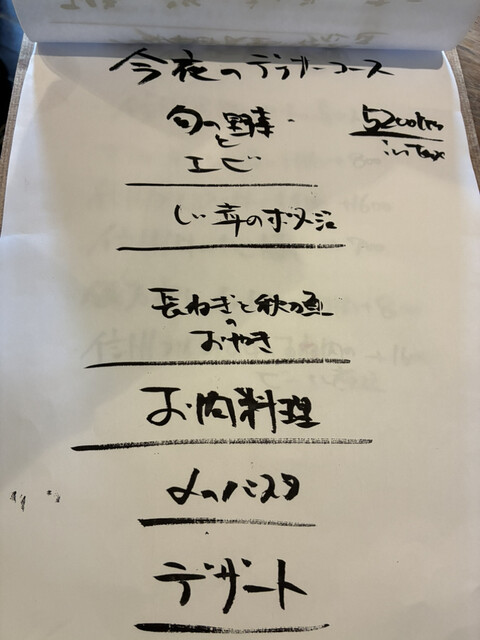 今夜のディナーコース
旬の野菜
と
エビ
5200yen
in Tax
じゃが芋のポタージュ
長ねぎと秋の魚
の
おやき
お肉料理
〆のパスタ
デザート